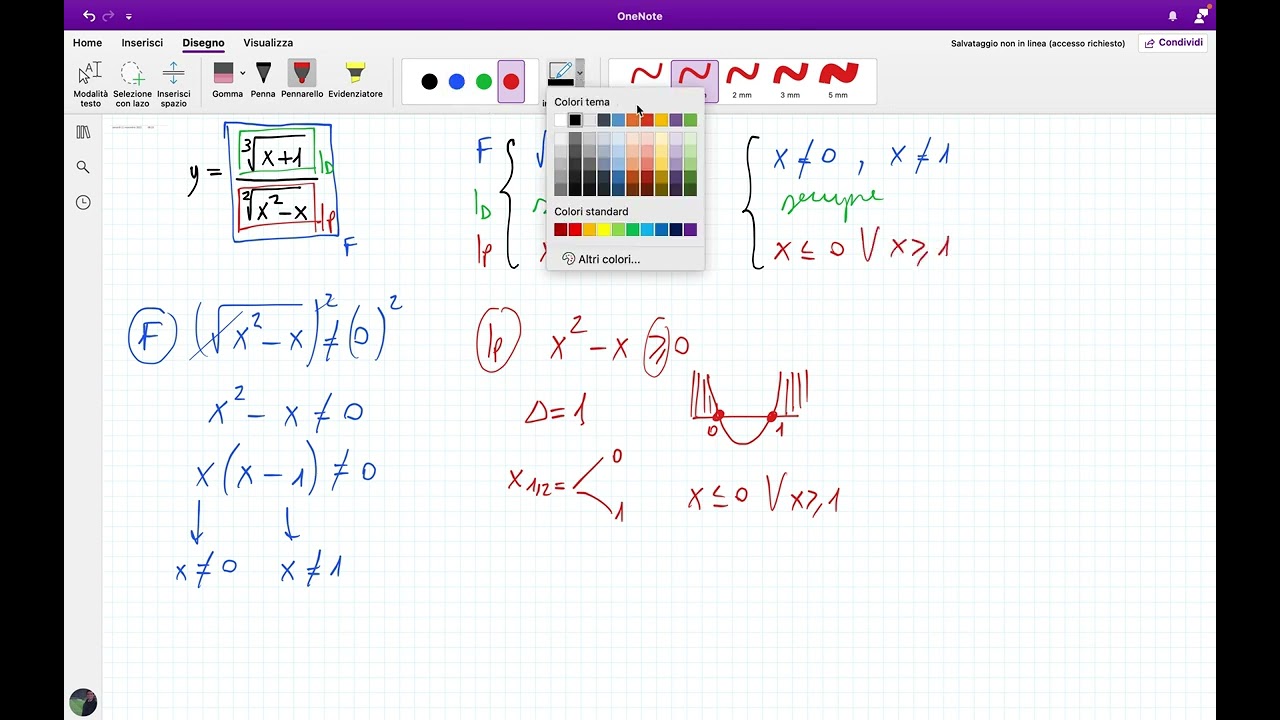 OneNote
Home Inserisci Disegno Visualizza
Salvataggio non in linea (accesso richiesto) Condividi
Modalità testo
Selezione con lazo
Inserisci spazio
Gomma Penna Pennarello Evidenziatore
2 mm 3 mm 5 mm
Colori tema
Colori standard
Altri colori...
y = ∛(x+1) / ²√(x²-x)
ID
IP
F
F
ID
IP
x ≠ 0 , x ≠ 1
sempre
x ≤ 0 ∨ x ≥ 1
F (√x²-x)² ≠ (0)²
x² - x ≠ 0
x(x-1) ≠ 0
x ≠ 0 x ≠ 1
IP x² - x ≥ 0
Δ = 1
0 1
x1,2 = 0
1
x ≤ 0 ∨ x ≥ 1